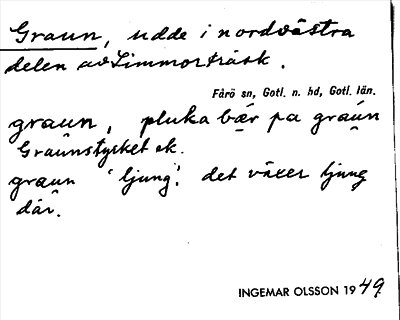 Graun, udde i nordvästra
delen av Limmorträsk.
Fårö sn, Gotl. n. hd, Gotl. län.
graun, pluka bær pa graun
Graunstycket ek.
graun 'ljung'. det växer ljung
där.
INGEMAR OLSSON 1949